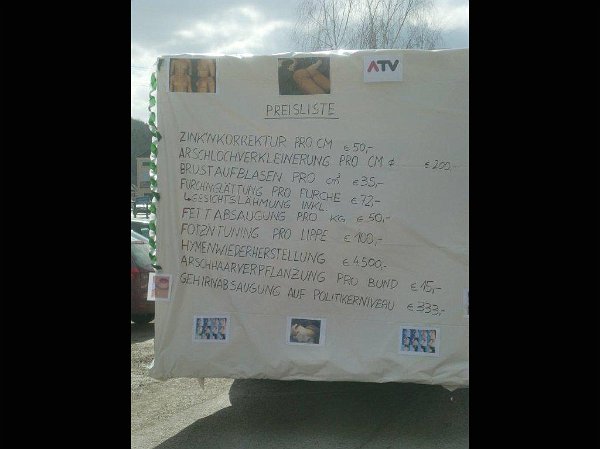 ATV
PREISLISTE
ZINK'NKORREKTUR PRO CM € 50,-
ARSCHLOCHVERKLEINERUNG PRO CM ¢ € 200,-
BRUSTAUFBLASEN PRO cm³ € 35,-
FURCHNGLÄTTUNG PRO FURCHE € 72,-
GESICHTSLÄHMUNG INKL
FETTABSAUGUNG PRO KG € 50,-
FOTZNTUNING PRO LIPPE € 100,-
HYMENWIEDERHERSTELLUNG € 4500,-
ARSCHHAARVERPFLANZUNG PRO BUND € 15,-
GEHIRNABSAUGUNG AUF POLITIKERNIVEAU € 333,-